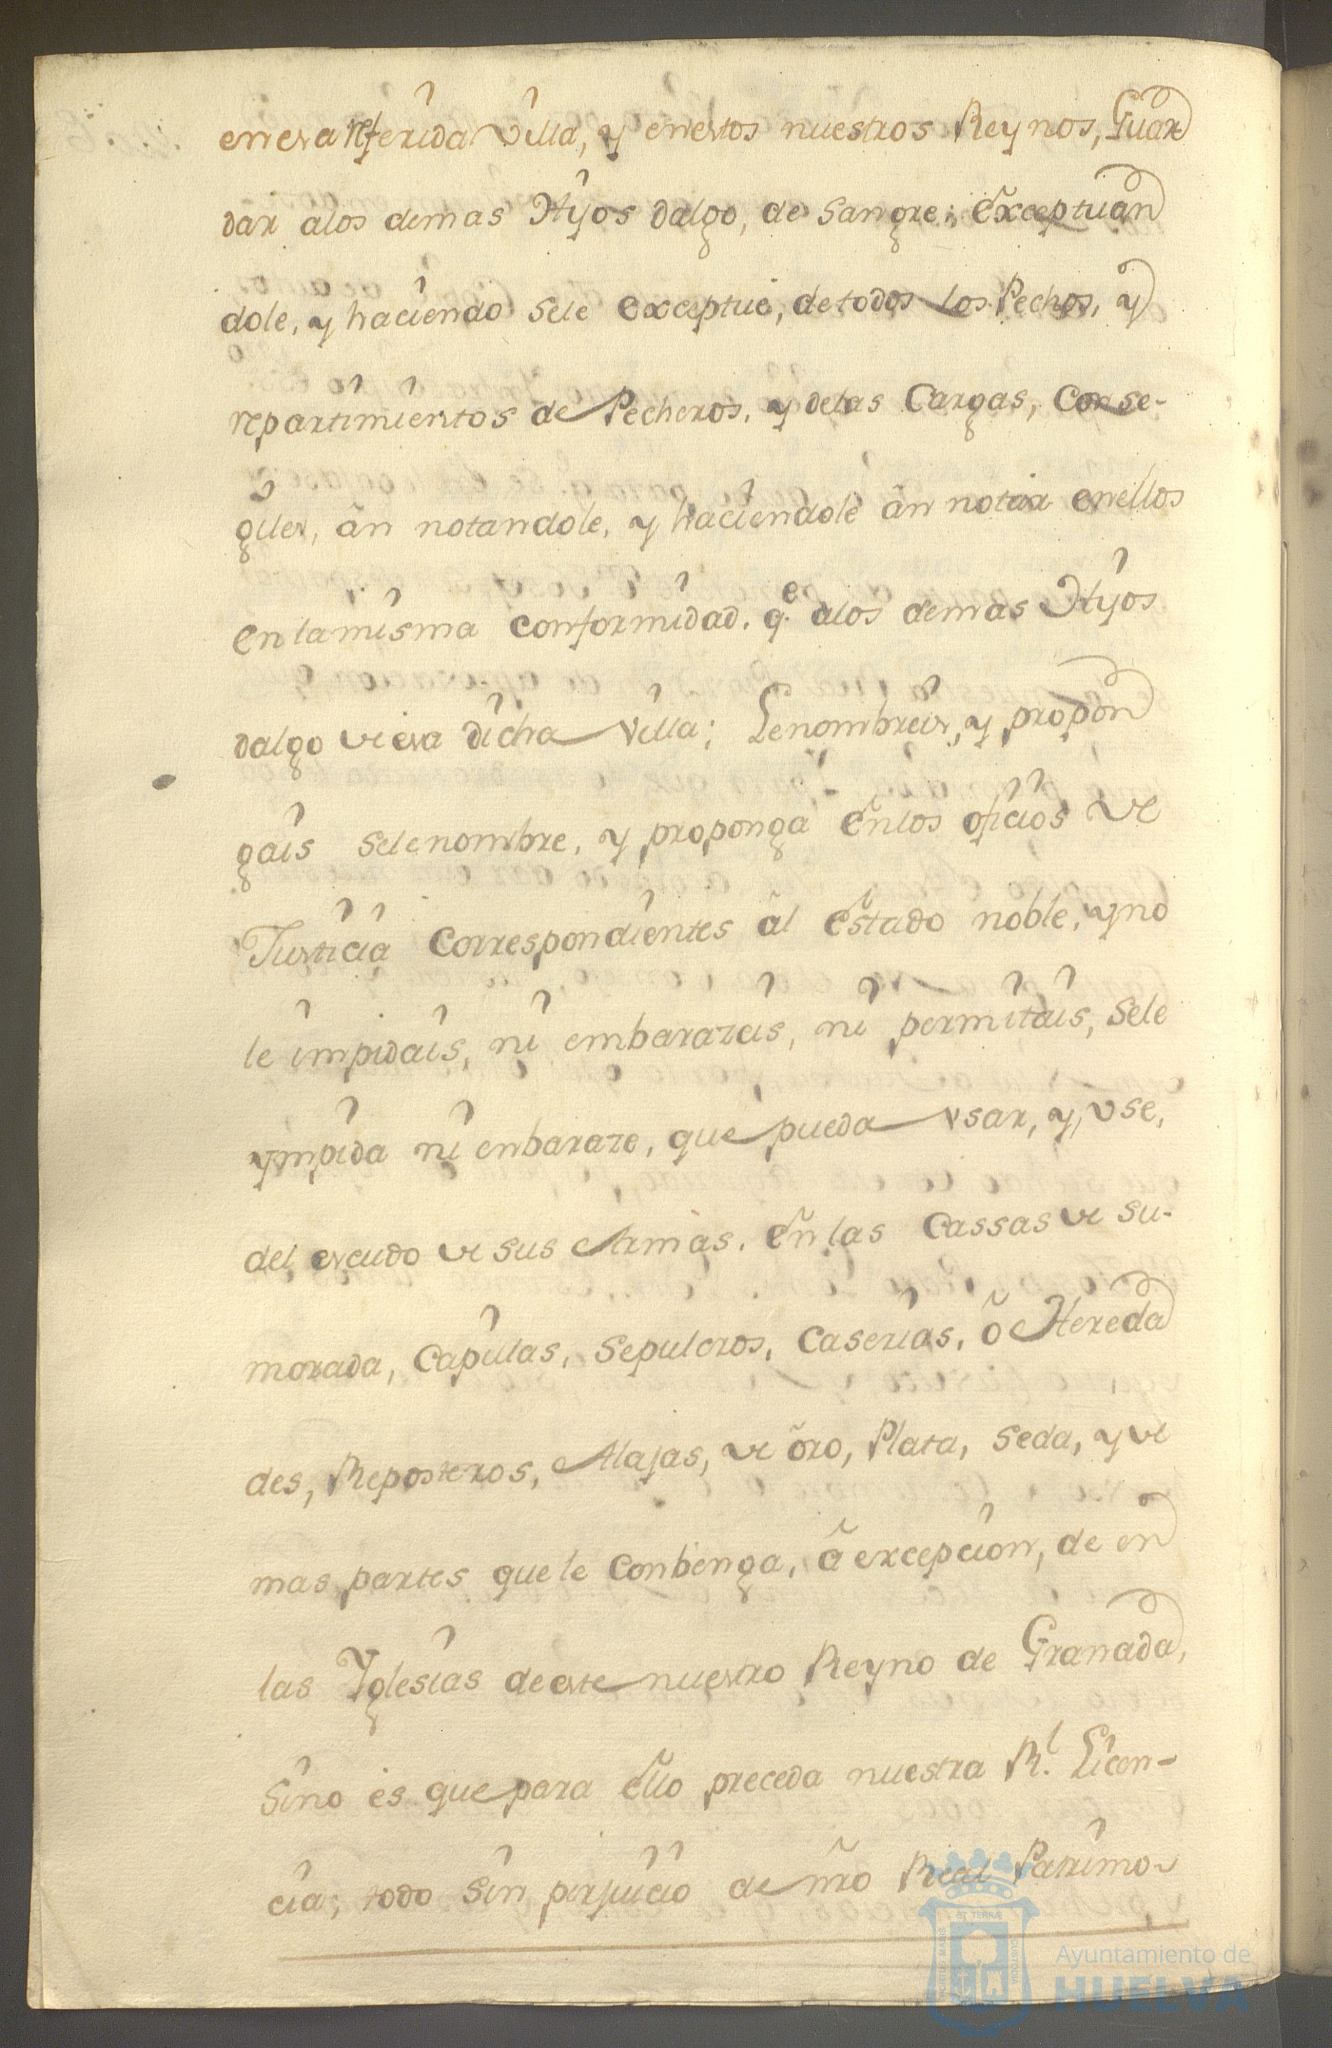 en esa referida Villa, y en estos nuestros Reynos, Guar
dar alos demas Hijos dalgo, de Sangre; exceptuan
dole, y haciendo sele exceptue, de todos los Pechos, y
repartimientos de Pecheros, y delas Cargas, Conse-
giles, ãn notandole, y haciendole ãn notar enellos
en la misma conformidad. q.e alos demas Hijos
dalgo de esa dicha Villa; Le nombreis, y propon
gais sele nombre, y proponga en los oficios de
Justicia correspondientes ãl estado noble, y no
le impidais, ni embarazeis, ni permitais, sele
ympida ni enbaraze, que pueda vsar, y, vse,
del escudo de sus Armas. en las Cassas de su-
morada, Capillas, Sepulcros, Caserias, õ Hereda
des, Reposteros, Alajas, de õro, Plata, Seda, y de
mas partes que le conbenga, ã excepcion, de en
las Yglesias de este nuestro Reyno de Granada,
Sino es que para ello preceda nuestra R.l Licen-
cia; todo sin perjuicio de nro Real Patrimo-
Ayuntamiento de
HUELVA